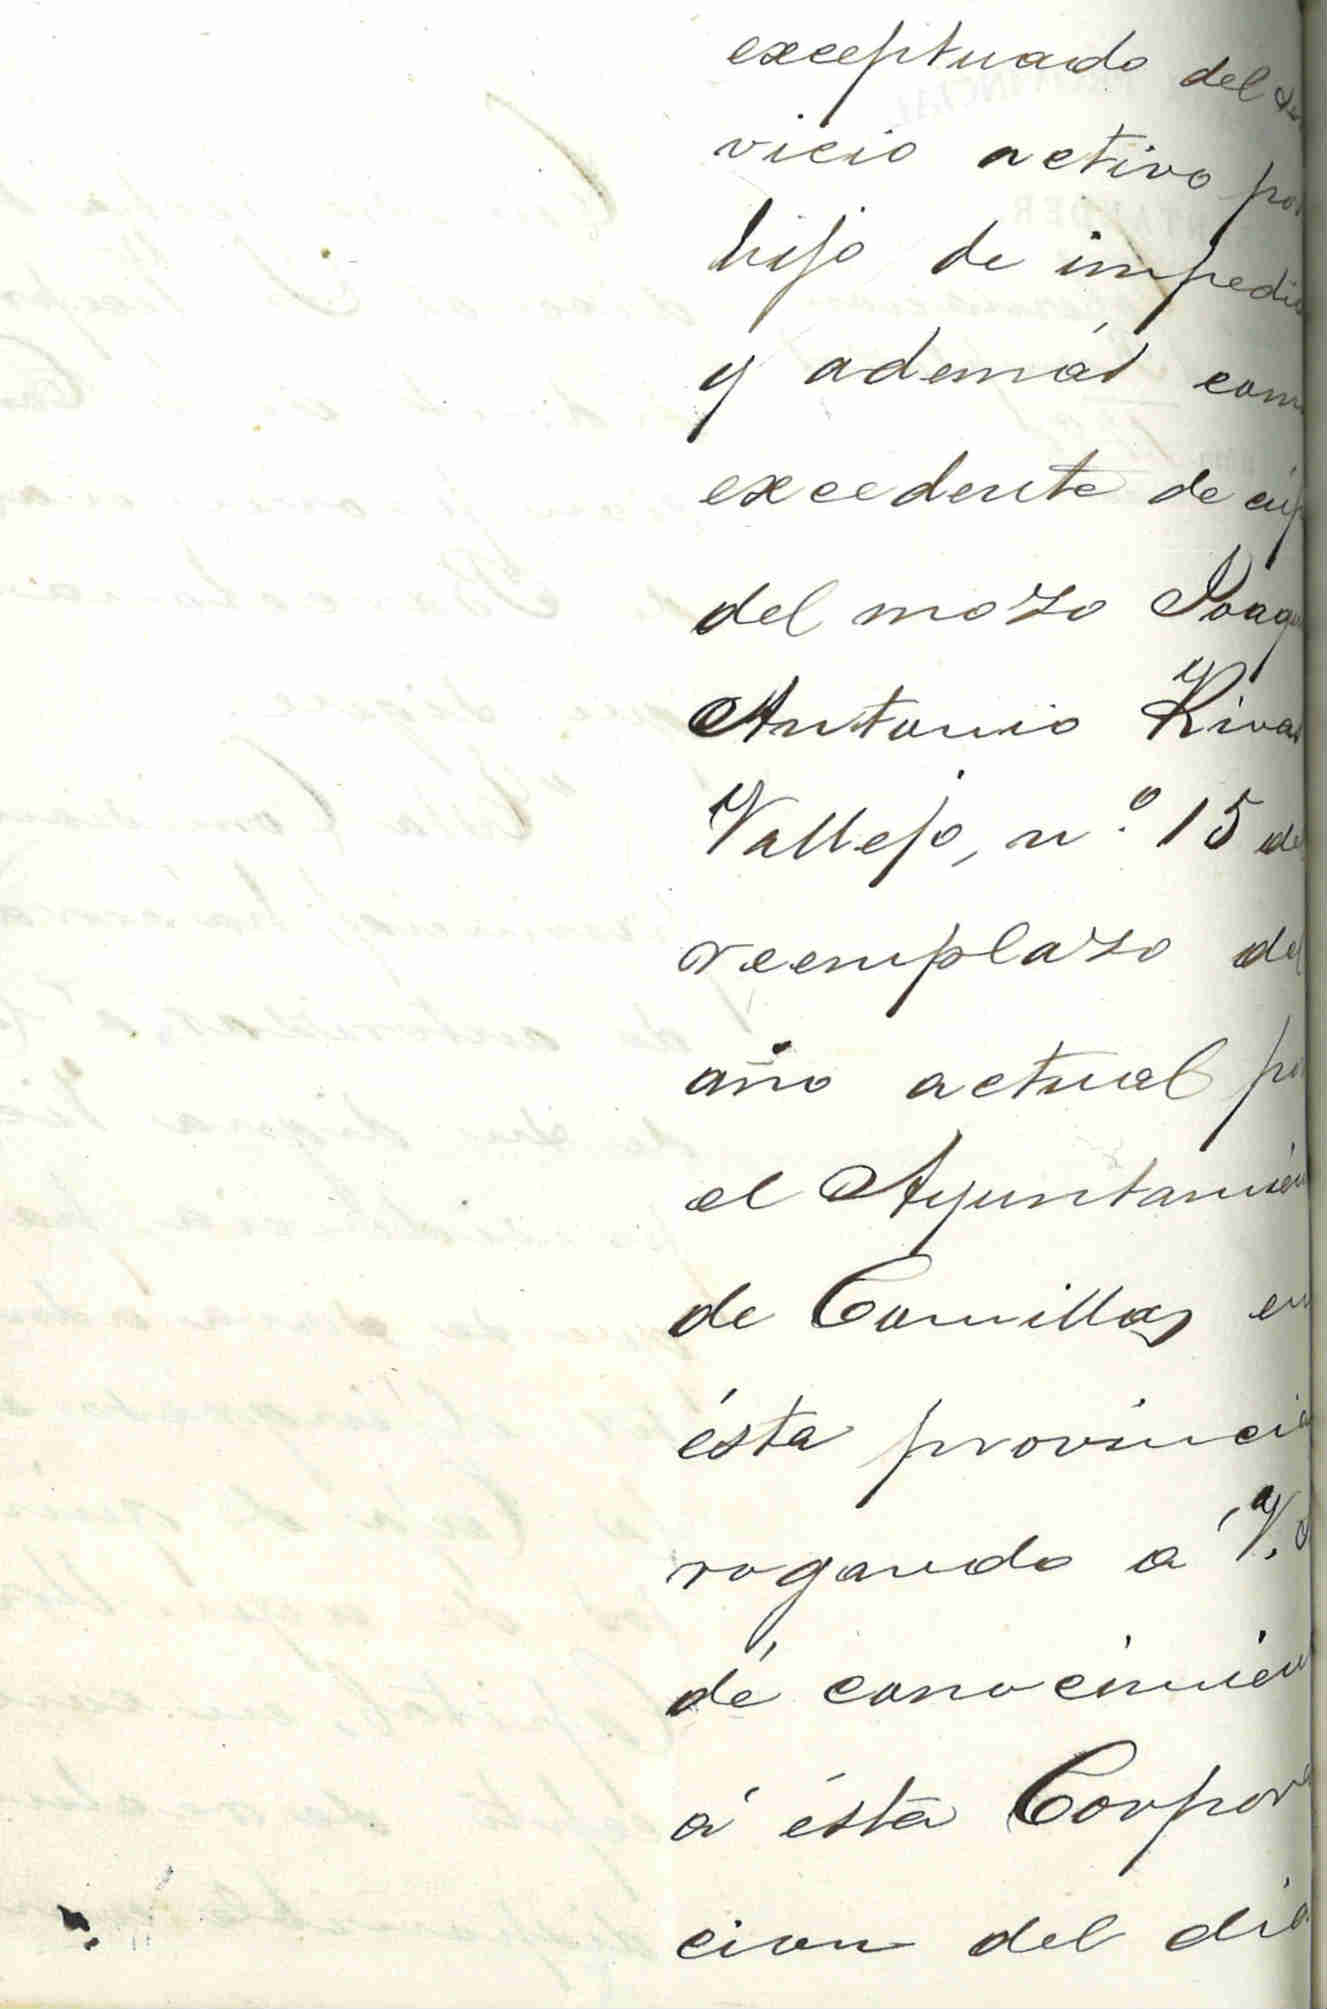 exceptuado del ser
vicio activo por
hijo de impedid
y además com
excedente de cup
del mozo Joaqu
Antonio Rivas
Vallejo, n.º 15 del
reemplazo del
año actual por
el Ayuntamien
de Comillas en
ésta provincia
rogando á V.
dé conocimien
á ésta Corpora
cion del dia